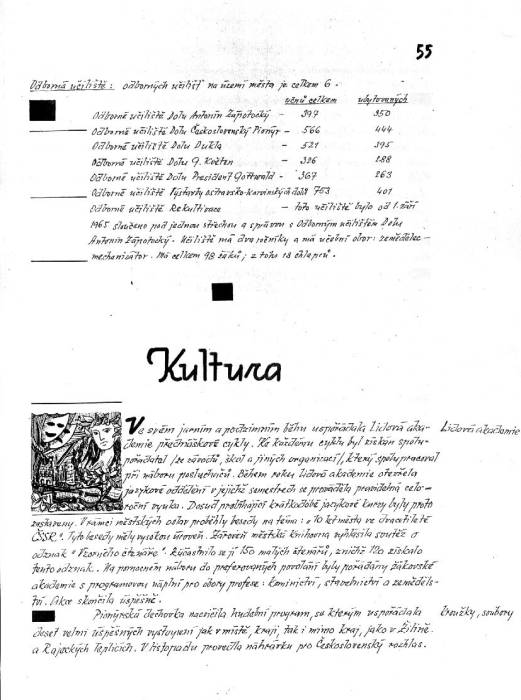 55
Odborná učiliště: odborných učilišť na území města je celkem 6.
učňů celkem ubytovaných
Odborné učiliště Dolu Antonín Zápotocký - 397 350
Odborné učiliště Dolu Československý Pionýr - 566 444
Odborné učiliště Dolu Dukla - 521 395
Odborné učiliště Dolu 9. Květen - 326 288
Odborné učiliště Dolu President Gottwald - 367 263
Odborné učiliště Výstavby ostravsko-karvinských dolů 753 401
Odborné učiliště Rekultivace - toto učiliště bylo od 1. září
1965 sloučeno pod jednou střechou a správou s Odborným učilištěm Dolu
Antonín Zápotocký. Učiliště má dva ročníky a má učební obor: zemědělec-
mechanizátor. Má celkem 98 žáků; z toho 18 chlapců.
Kultura
Ve svém jarním a podzimním běhu uspořádala Lidová aka- Lidová akademie
demie přednáškové cykly. Ke každému cyklu byl získán spolu-
pořadatel /ze závodů, škol a jiných organizací/, který spolupracoval
při náboru posluchačů. Během roku Lidová akademie otevřela
jazykové oddělení v jejichž semestrech se prováděla pravidelná celo-
roční výuka. Dosud probíhající krátkodobé jazykové kurzy byly proto
zastaveny. V rámci městských oslav proběhly besedy na téma: "10 let města ve dvacetileté
ČSSR". Tyto besedy měly vysokou úroveň. Zároveň městská knihovna vyhlásila soutěž o
odznak "Vzorného čtenáře". Zúčastnilo se jí 150 malých čtenářů, z nichž 120 získalo
tento odznak. Na pomocném náboru do preferovaných povolání byly pořádány žákovské
akademie s programovou náplní pro obory profese: hornictví, stavebnictví a zeměděls-
tví. Akce skončila úspěšně.
Pionýrská dechovka nacvičila hudební program, se kterým uspořádala kroužky, soubory
deset velmi úspěšných vystoupení jak v místě, kraji, tak i mimo kraj, jako v Žilině
a Rajeckých Teplicích. V listopadu provedla nahrávku pro Československý rozhlas.